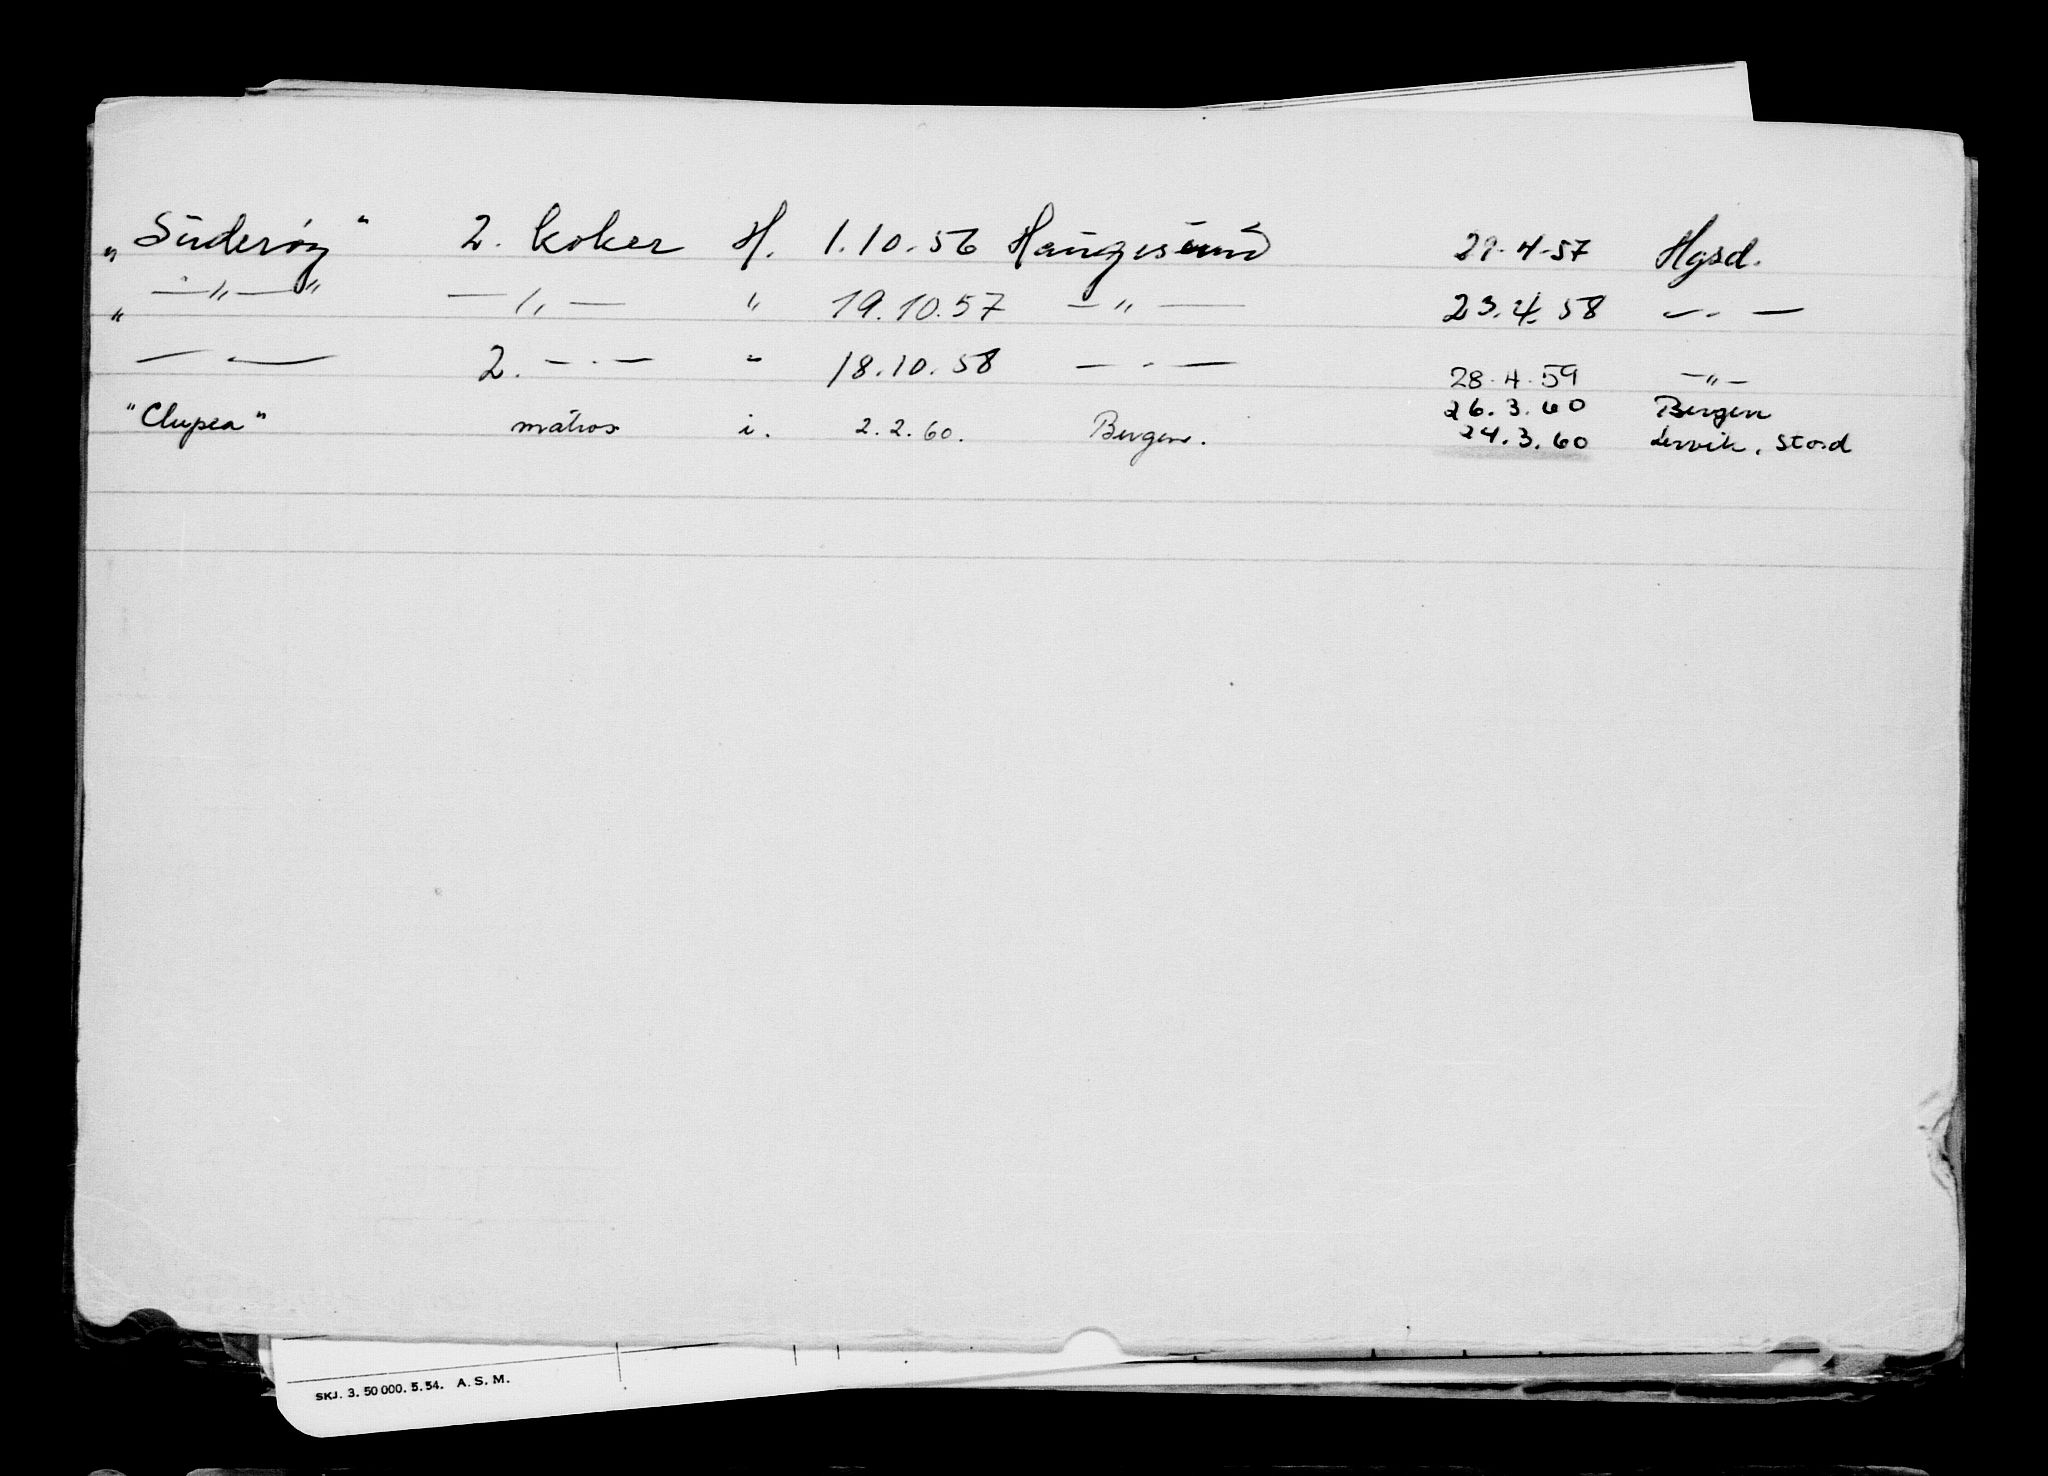 „Suderøy" 2. koker H. 1.10.56 Haugesund 29.4.57 Hgsd.
„ —"—" —"— " 19.10.57 —"— 23.4.58 —"—
— — 2. — . — " 18.10.58 — " — 28.4.59 —"—
"Clupea" matros i. 2.2.60. Bergen. 26.3.60 Bergen
24.3.60 Lervik, Stord
SKJ. 3. 50 000. 5. 54. A. S. M.